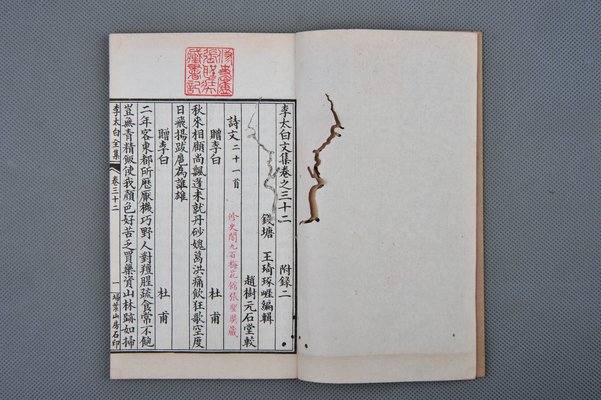 李太白文集卷之三十二 附錄二
錢塘 王琦琢崖編輯
趙樹元石堂較
詩文二十一首
修史閣九百梅花館張聖奘藏
贈李白 杜甫
秋來相顧尚飄蓬未就丹砂愧葛洪痛飲狂歌空度
日飛揚跋扈為誰雄
贈李白 杜甫
二年客東都所歷厭機巧野人對羶腥蔬食常不飽
豈無青精飯使我顏色好苦乏買藥資山林跡如掃
李太白全集 卷三十二 一 埽葉山房石印
張聖奘
藏書記